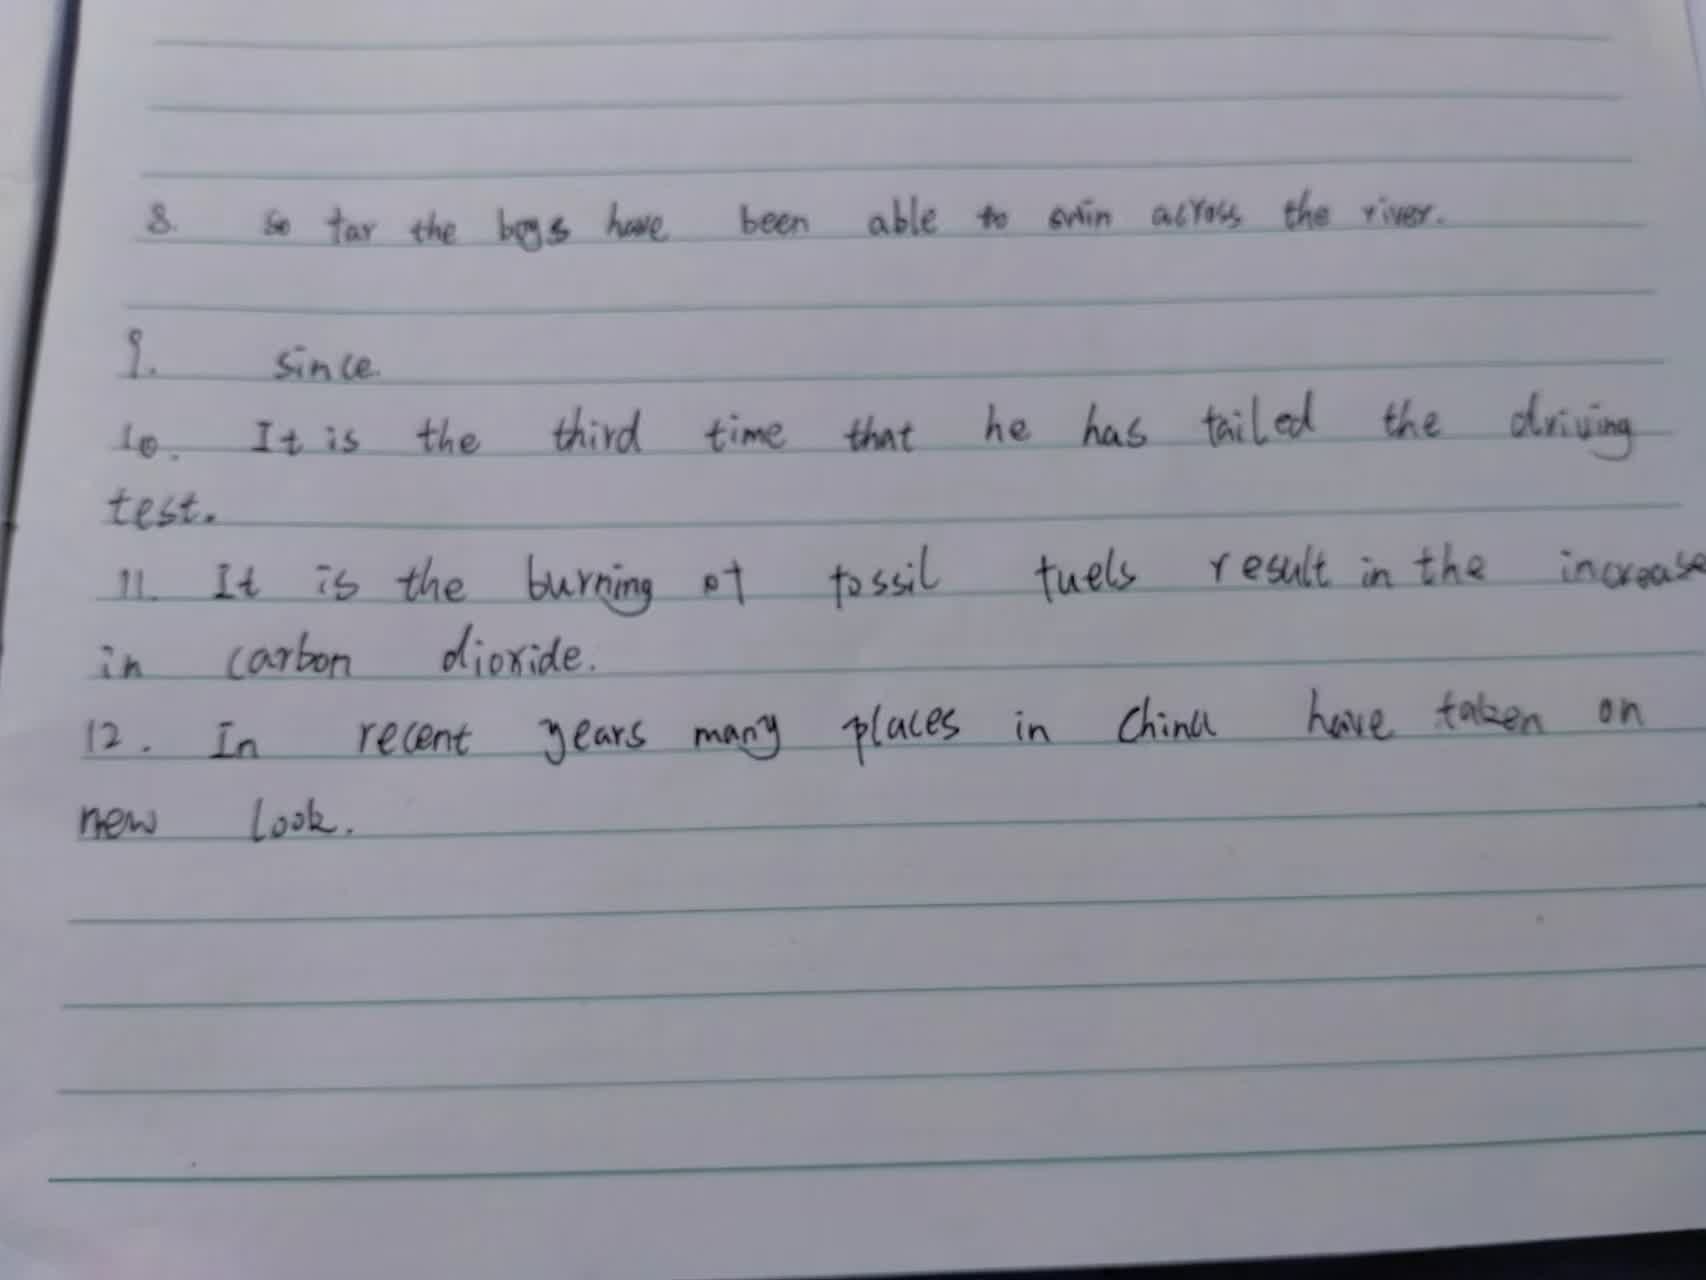 8. so far the boys have been able to swin across the river.
9. since.
10. It is the third time that he has failed the driving
test.
11. It is the burning of fossil fuels result in the increase
in carbon dioxide.
12. In recent years many places in China have taken on
new look.